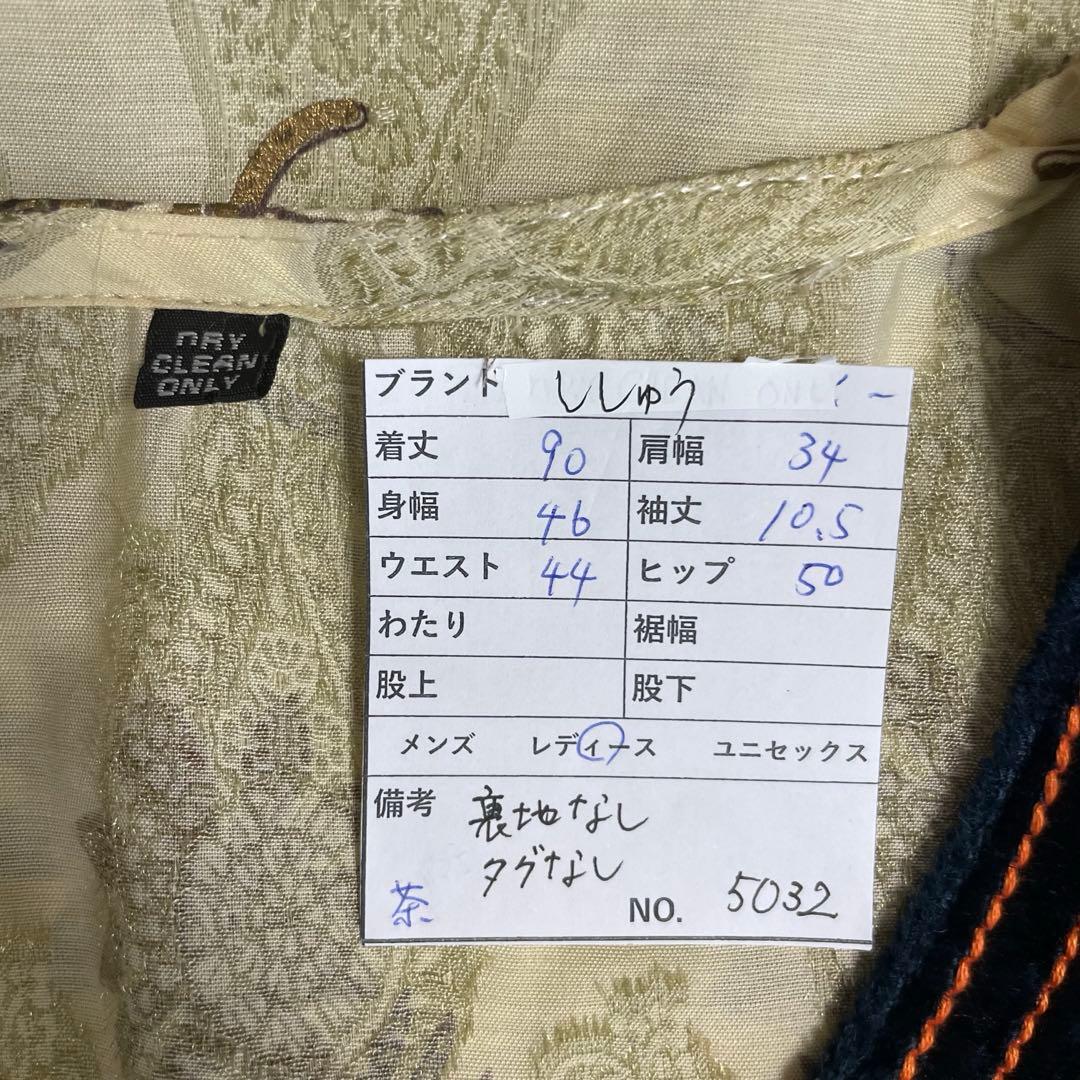 DRY
CLEAN
ONLY
ブランド ししゅう
着丈 90 肩幅 34
身幅 46 袖丈 10.5
ウエスト 44 ヒップ 50
わたり 裾幅
股上 股下
メンズ レディース ユニセックス
備考 裏地なし
タグなし
茶 NO. 5032